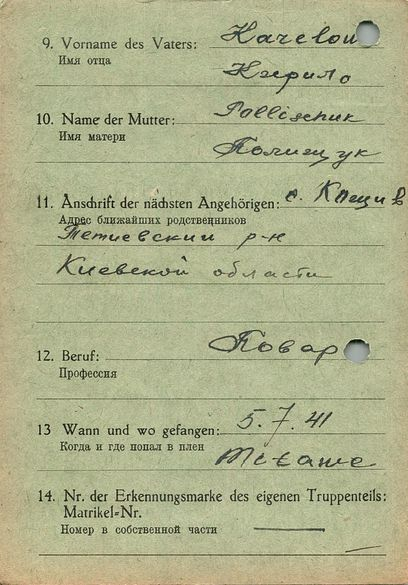 9. Vorname des Vaters:
Имя отца
Кирило
10. Name der Mutter: Pollischuk
Имя матери
Полищук
11. Anschrift der nächsten Angehörigen: с.
Адрес ближайших родственников
Тетиевский р-н
Киевской области
12. Beruf: Повар
Профессия
13 Wann und wo gefangen: 5.7.41
Когда и где попал в плен
14. Nr. der Erkennungsmarke des eigenen Truppenteils:
Matrikel-Nr.
Номер в собственной части